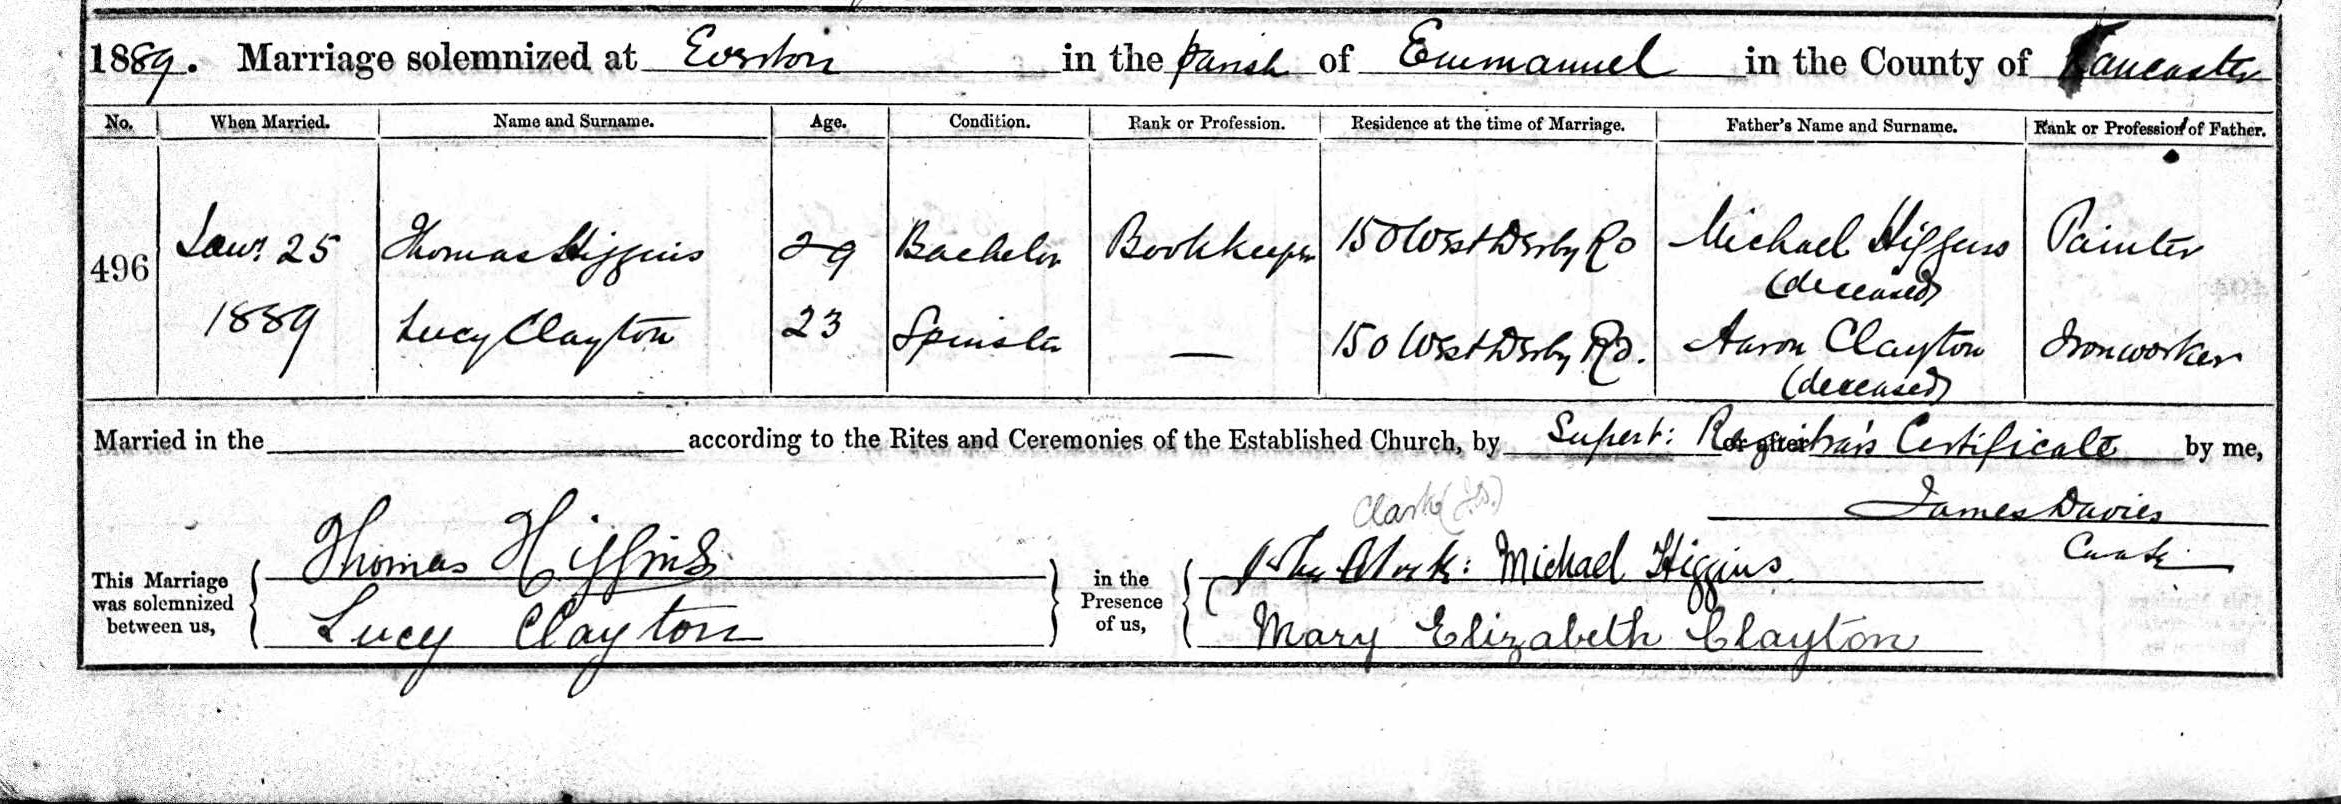 1889. Marriage solemnized at Everton in the Parish of Emmanuel in the County of Lancaster
No. When Married. Name and Surname. Age. Condition. Rank or Profession. Residence at the time of Marriage. Father's Name and Surname. Rank or Profession of Father.
496 Jany. 25 Thomas Higgins 29 Bachelor Bookkeeper 150 West Derby Rd Michael Higgins Painter
(deceased)
1889 Lucy Clayton 23 Spinster — 150 West Derby Rd. Aaron Clayton Ironworker
(deceased)
Married in the according to the Rites and Ceremonies of the Established Church, by Supert: Registrar's Certificate or after by me,
James Davies
Curate
This Marriage was solemnized between us, Thomas Higgins Lucy Clayton
in the Presence of us, Michael Higgins Mary Elizabeth Clayton